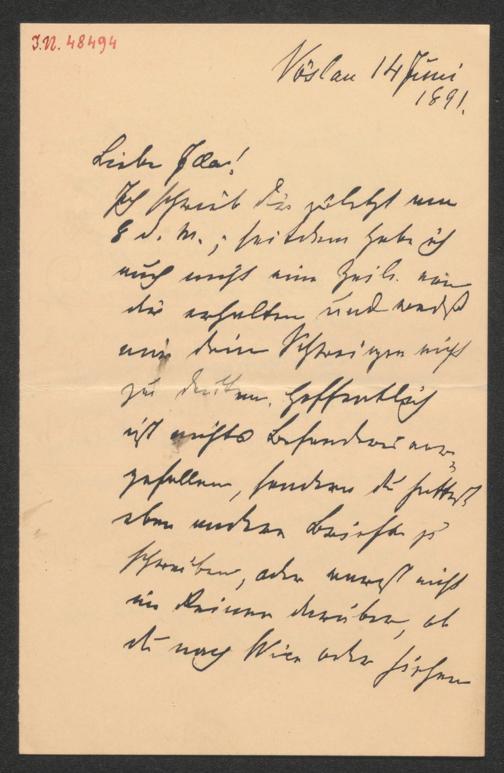 I.N. 48494
Vöslau 14 Juni
1891.
Liebe Ida!
Ich schrieb dir zuletzt am
8 d. M.; seitdem habe ich
auch nicht eine Zeile von
dir erhalten und weiß
mir dein Schweigen nicht
zu deuten. Hoffentlich
ist nichts Besonderes vor-
gefallen, sondern du hattest
eben andere Briefe zu
schreiben, oder warst nicht
im Reinen darüber, ob
du nach Wien oder hieher